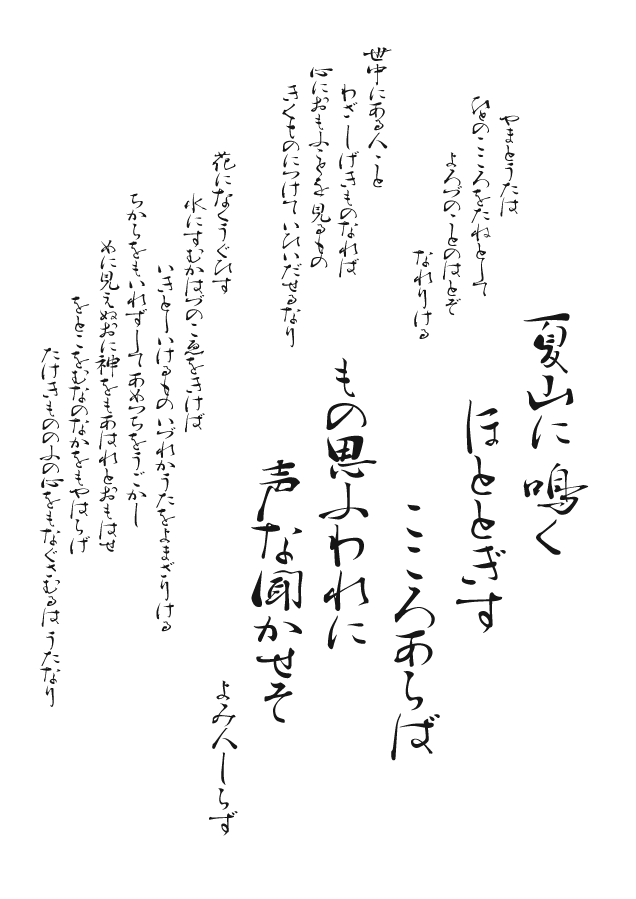 夏山に 鳴く
ほととぎす
こころあらば
もの思ふわれに
声な聞かせそ
よみ人しらず
やまとうたは
ひとのこころをたねとして
よろづのことのはとぞ
なれりける
世中にある人こと
わざしげきものなれば
心におもふことを見るもの
きくものにつけていひいだせるなり
花になくうぐひす
水にすむかはづのこゑをきけば
いきとしいけるもの いづれかうたをよまざりける
ちからをもいれずして あめつちをうごかし
めに見えぬおに神をもあはれとおもはせ
をとこをむなのなかをもやはらげ
たけきもののふの心をもなぐさむるは うたなり